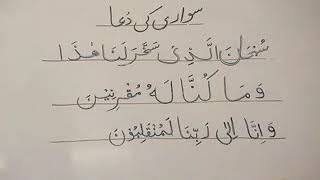 سواری کی دُعا
سُبْحَانَ الَّذِیْ سَخَّرَ لَنَا هٰذَا
وَمَا كُنَّا لَهٗ مُقْرِنِیْنَ
وَاِنَّا اِلٰی رَبِّنَا لَمُنْقَلِبُوْنَ